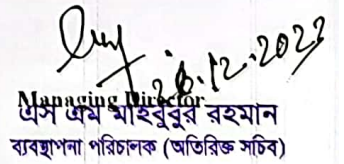 26.12.2023
Managing Director
এস এম মাহবুবুর রহমান
ব্যবস্থাপনা পরিচালক (অতিরিক্ত সচিব)